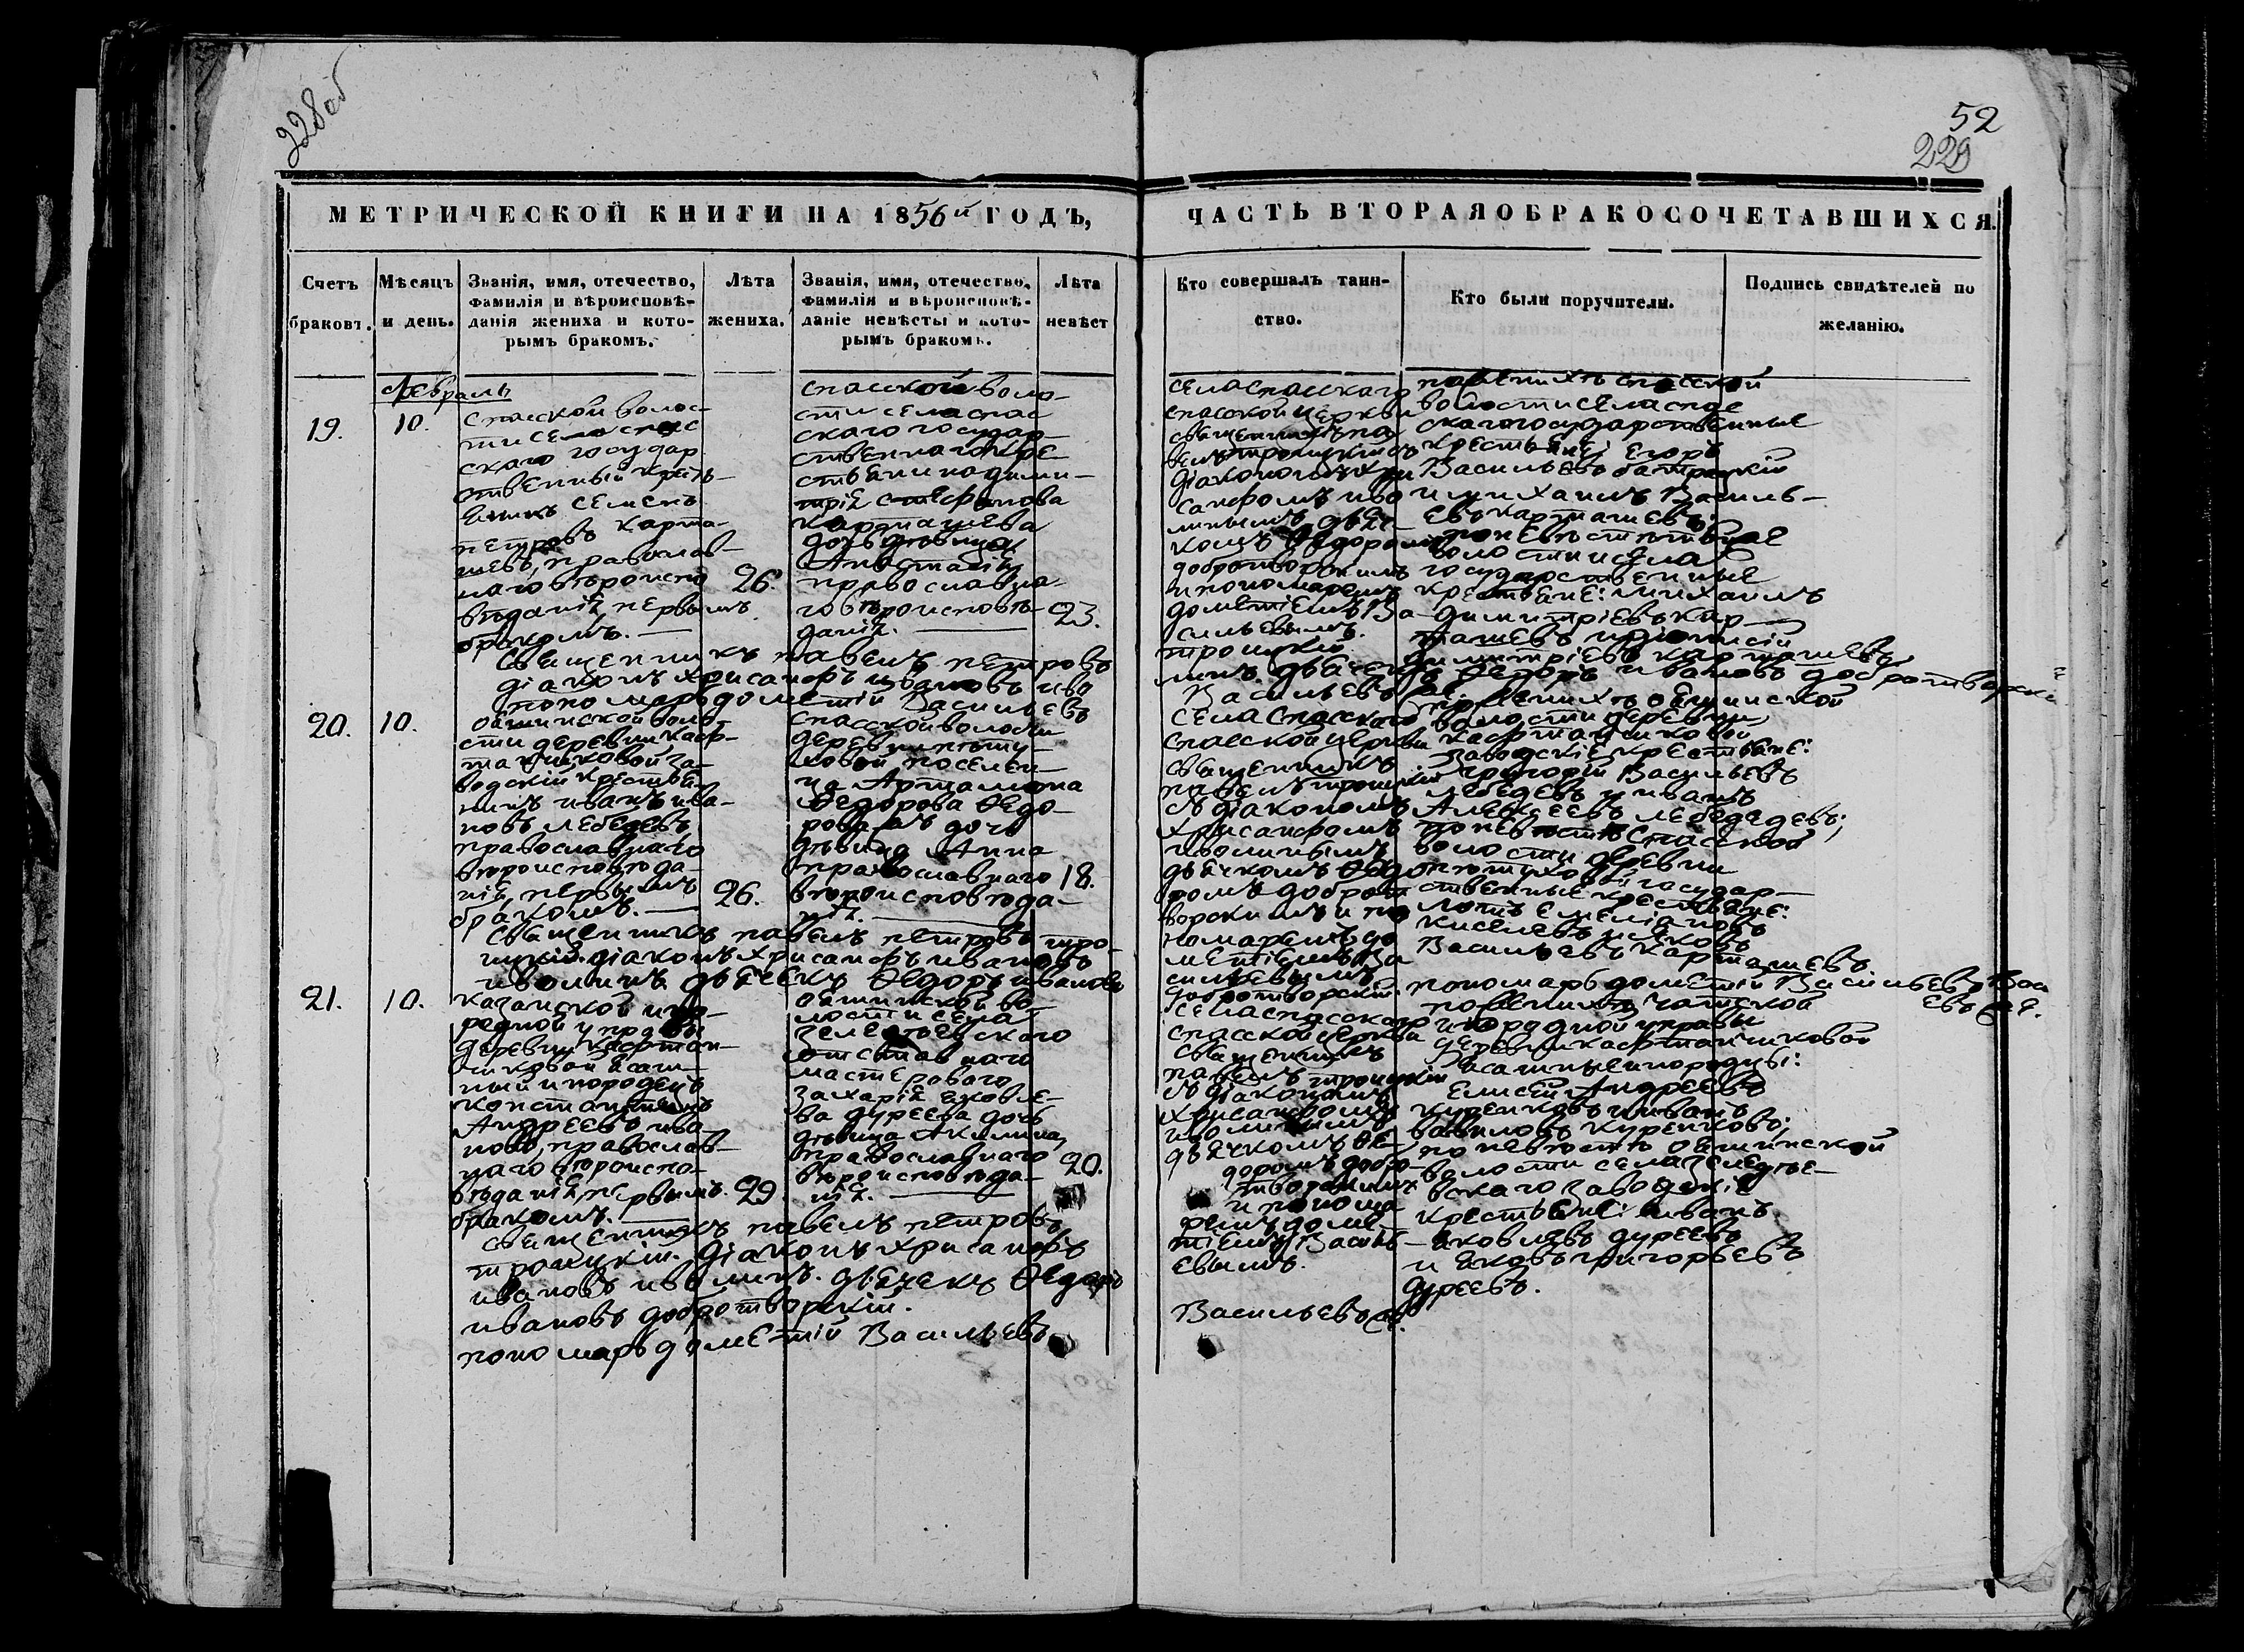 228об
52
229
МЕТРИЧЕСКОЙ КНИГИ НА 1856й ГОДЪ,
ЧАСТЬ ВТОРАЯ О БРАКОСОЧЕТАВШИХСЯ.
Счетъ браковъ.
Мѣсяцъ и день.
Званія, имя, отечество,
фамилія и вѣроисповѣ-
данія жениха и кото-
рымъ бракомъ.
Лѣта
жениха.
Званія, имя, отечество,
фамилія и вѣроисповѣ-
даніе невѣсты и кото-
рымъ бракомъ.
Лѣта
невѣст
Кто совершалъ таин-
ство.
Кто были поручители.
Подпись свидѣтелей по
желанію.
Февраль
19.
10.
Спасской волос-
ти села спас
скаго государ
ственный кресть-
янинъ семенъ
петровъ карта-
шевъ, православ-
наго вѣроиспо
вѣданія, первымъ
бракомъ.
26.
спасской воло-
сти села спас
скаго государ-
ственнаго кре-
стьянина дими-
трія стефанова
карташева
дочь девица
Анастасія
православна-
го вѣроисповѣ-
данія.
23.
села спасскаго
спасской церкви
священникъ па
велъ троицкій съ
діакономъ хри
санфомъ иво
линымъ дьяч-
комъ Ѳедоромъ
добротворскимъ
и пономаремъ
дометіемъ Ва-
сильевымъ.
по женихѣ спасской
волости села спас
скаго государственные
крестьяне: Егоръ
Васильевъ
и михаилъ Василь-
евъ карташевъ;
по невѣстѣ
волости села
государственные
крестьяне: михаилъ
димитріевъ кар-
ташевъ и діонисій
димитріевъ карташевъ
Священникъ павелъ петровъ
троицкій
діаконъ хрисанфъ ивановъ иво
линъ. дьячекъ Ѳедоръ ивановъ добротворскій
пономарь дометій Васильевъ
Васильевъ
20.
10.
ояшинской воло-
сти деревни кафр-
танчиковой за-
водскій крестья-
нинъ иванъ ива-
новъ лебедевъ
православнаго
вѣроисповѣда-
нія, первымъ
бракомъ.
26.
спасской волости
деревни
ковой поселен-
ца Артамона
Ѳедорова Ѳедо-
рова дочь
дѣвица Анна
православнаго
вѣроисповѣда-
нія.
18.
села спасскаго
спасской церкви
священникъ
павелъ троицкій
съ діакономъ
хрисанфомъ
иволинымъ
дьячкомъ Ѳедо
ромъ доброт
ворскимъ и по
номаремъ до
метіемъ Ва
сильевымъ.
по женихѣ ояшинской
волости деревни
кафтанчиковой
заводскіе крестьяне:
григорій Васильевъ
лебедевъ и иванъ
Алексеевъ лебедевъ;
по невѣстѣ спасской
волости деревни
государ-
ственные крестьяне:
киселевъ и яковъ
Васильевъ карташевъ.
Священникъ павелъ петровъ тро-
ицкій. діаконъ хрисанфъ ивановъ
иволинъ. дьячекъ Ѳедоръ ивановъ
добротворскій. пономарь дометій Васильевъ
21.
10.
казанской ино-
родной управы
деревни кафтан-
чиковой ясаш-
ный инородецъ
константинъ
Андреевъ ива-
новъ, православ-
наго вѣроиспо-
вѣданія, первымъ
бракомъ.
29.
ояшинской во-
лости села
отставнаго
мастероваго
захарія яковле-
ва дуреева дочь
дѣвица Акилина,
православнаго
вѣроисповѣда-
нія.
20.
села спасскаго
спасской церкви
священникъ
павелъ троицкій
съ діакономъ
хрисанфомъ
иволинымъ
дьячкомъ Ѳе-
доромъ добро-
творскимъ
и понома
ремъ доме-
тіемъ Василь-
евымъ.
по женихѣ
инородной управы
деревни кафтанчиковой
ясашные инородцы:
Елисей Андреевъ
куренковъ и иванъ
вавиловъ куренковъ;
по невѣстѣ ояшинской
волости села
скаго заводскіе
крестьяне: иванъ
яковлевъ дуреевъ
и яковъ григорьевъ
дуреевъ.
священникъ павелъ петровъ
троицкій. діаконъ хрисанфъ
ивановъ иволинъ. дьячекъ Ѳедоръ
ивановъ добротворскій.
пономарь дометій Васильевъ
Васильевъ